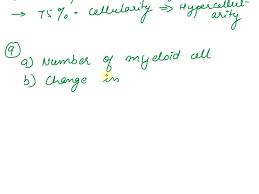 → 75% - cellularity ⇒ Hypercellul-
arity
9
a) Number of myeloid cell
b) Change in